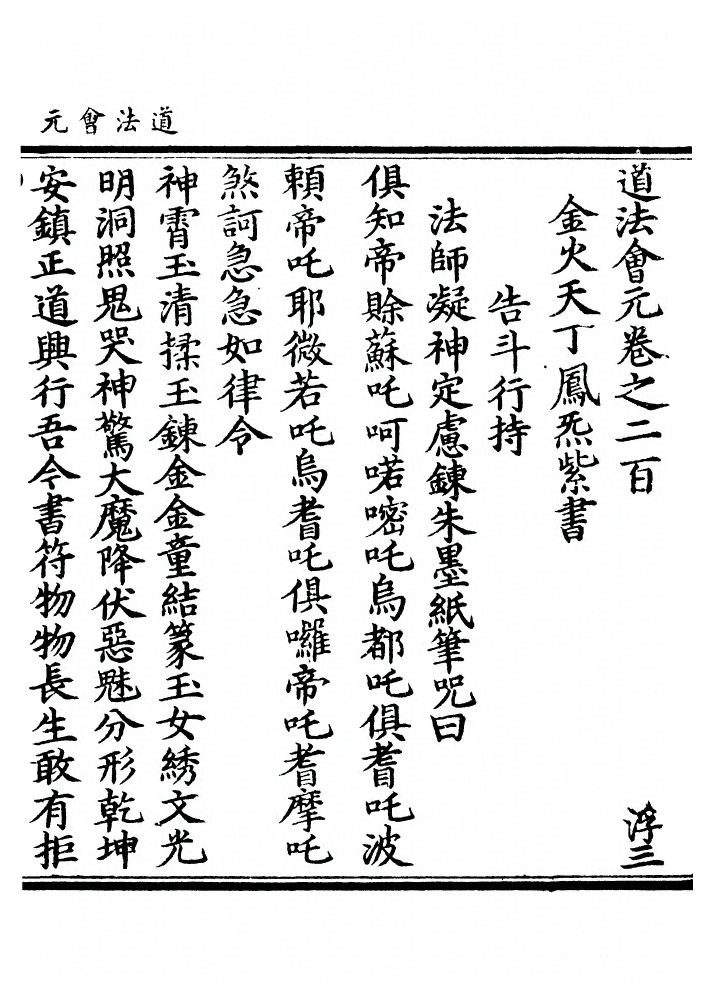 道法會元
道法會元卷之二百
浮三
金火天丁鳳炁紫書
告斗行持
法師凝神定慮鍊朱墨紙筆咒曰
俱知帝賒蘇吒呵喏嘧吒烏都吒俱耆吒波
賴帝吒耶微若吒烏耆吒俱囉帝吒耆摩吒
煞訶急急如律令
神霄玉清揉玉鍊金金童結篆玉女綉文光
明洞照鬼哭神驚大魔降伏惡魅分形乾坤
安鎮正道興行吾今書符物物長生敢有拒